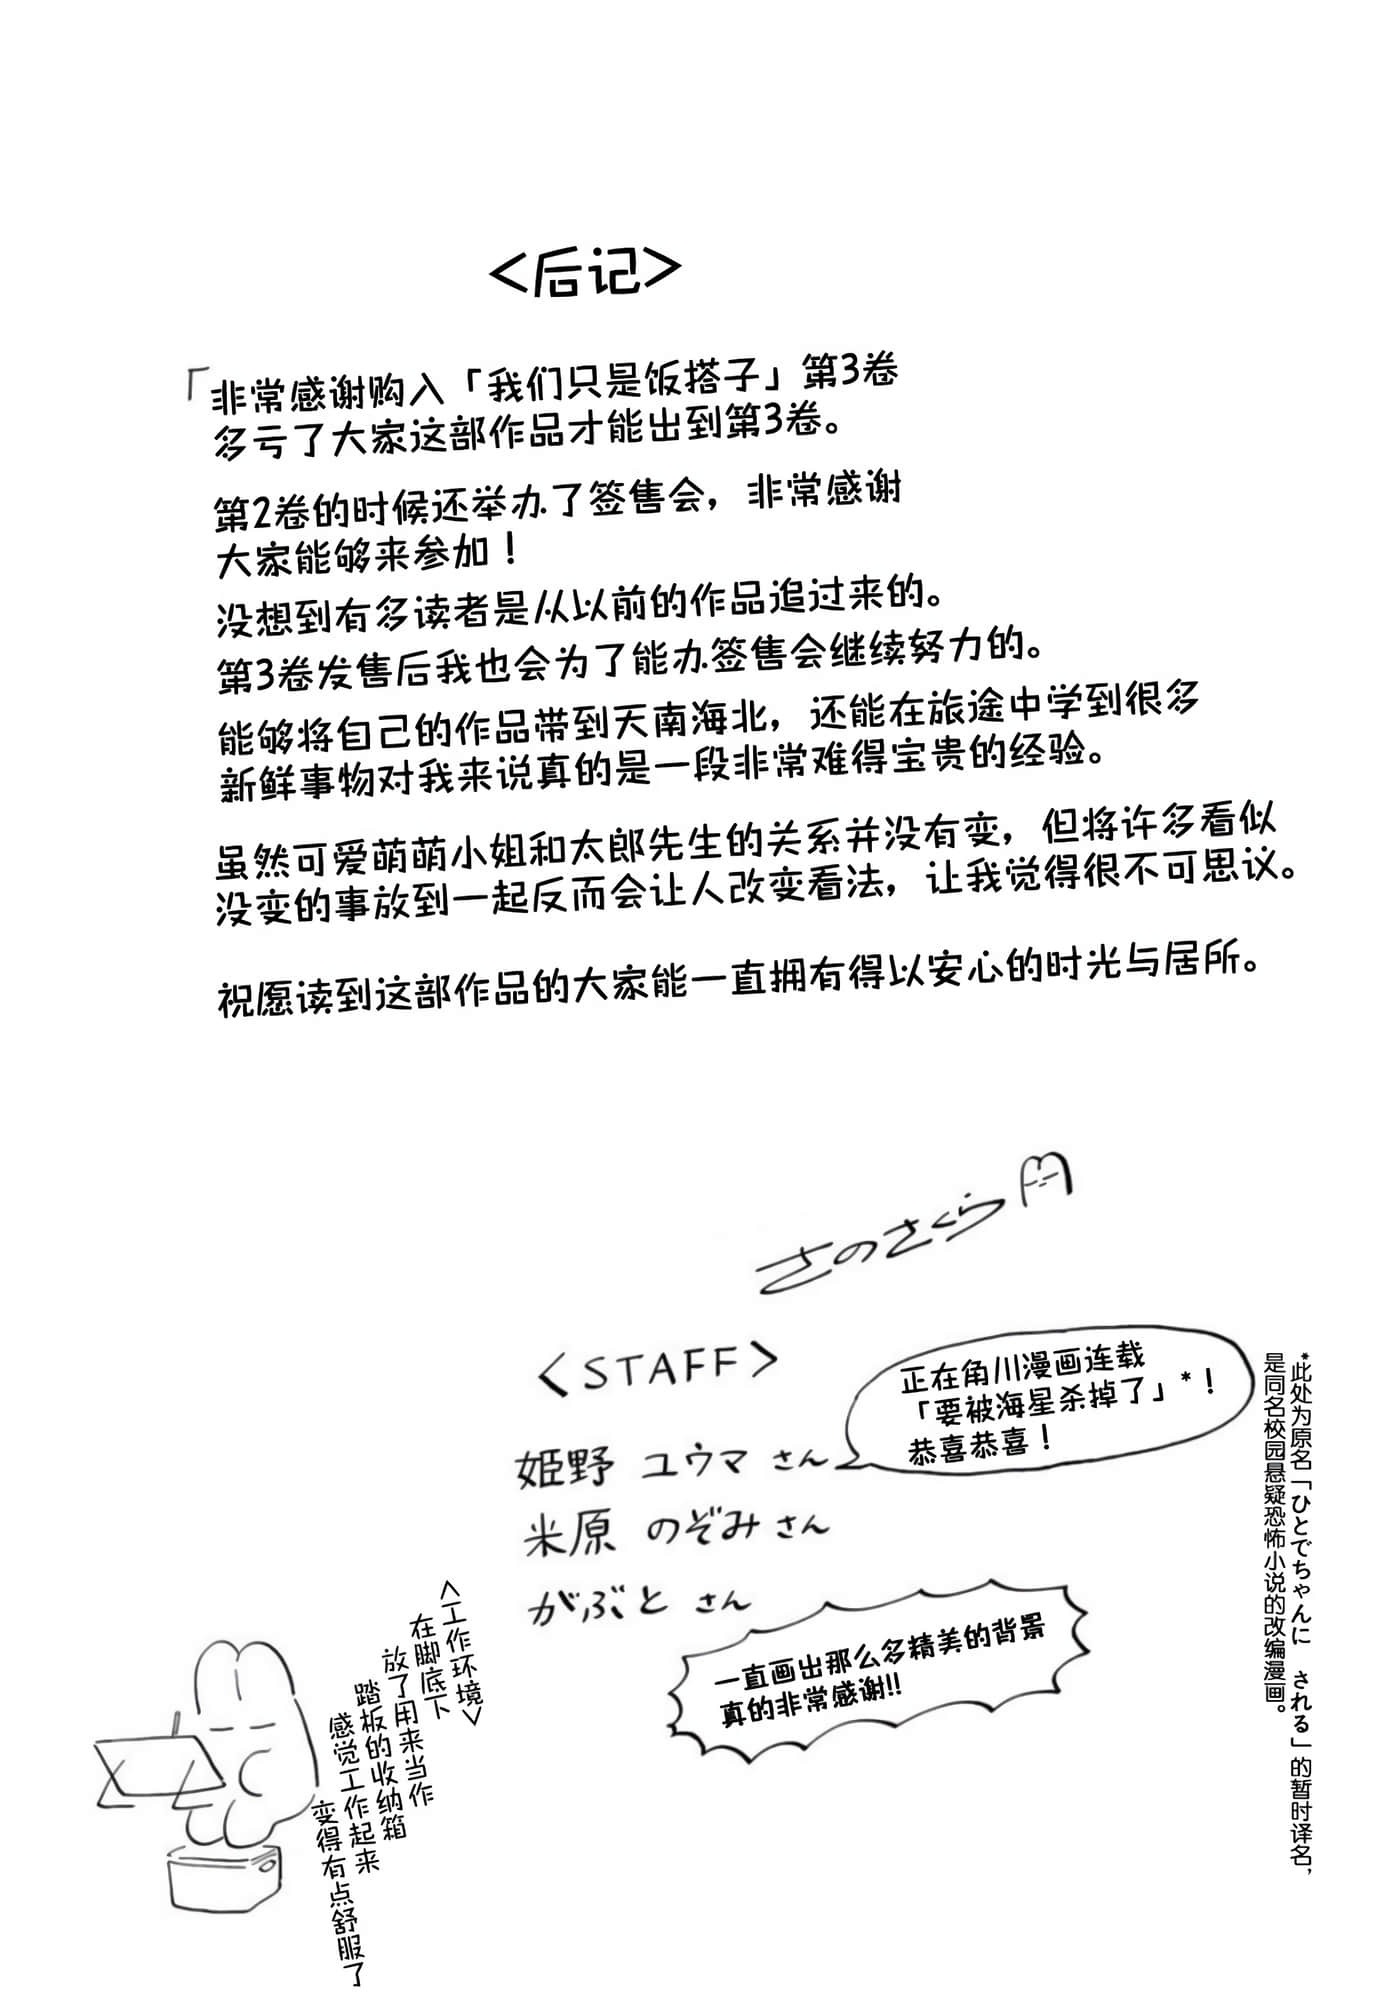 <后记>
「非常感谢购入「我们只是饭搭子」第3卷
多亏了大家这部作品才能出到第3卷。
第2卷的时候还举办了签售会，非常感谢
大家能够来参加！
没想到有多读者是从以前的作品追过来的。
第3卷发售后我也会为了能办签售会继续努力的。
能够将自己的作品带到天南海北，还能在旅途中学到很多
新鲜事物对我来说真的是一段非常难得宝贵的经验。
虽然可爱萌萌小姐和太郎先生的关系并没有变，但将许多看似
没变的事放到一起反而会让人改变看法，让我觉得很不可思议。
祝愿读到这部作品的大家能一直拥有得以安心的时光与居所。
さのさくら
<STAFF>
姫野 ユウマ さん
正在角川漫画连载
「要被海星杀掉了」*！
恭喜恭喜！
米原 のぞみ さん
がぶと さん
一直画出那么多精美的背景
真的非常感谢!!
*此处为原名「ひとでちゃんに される」的暂时译名，
是同名校园悬疑恐怖小说的改编漫画。
<工作环境>
在脚底下
放了用来当作
踏板的收纳箱
感觉工作起来
变得有点舒服了